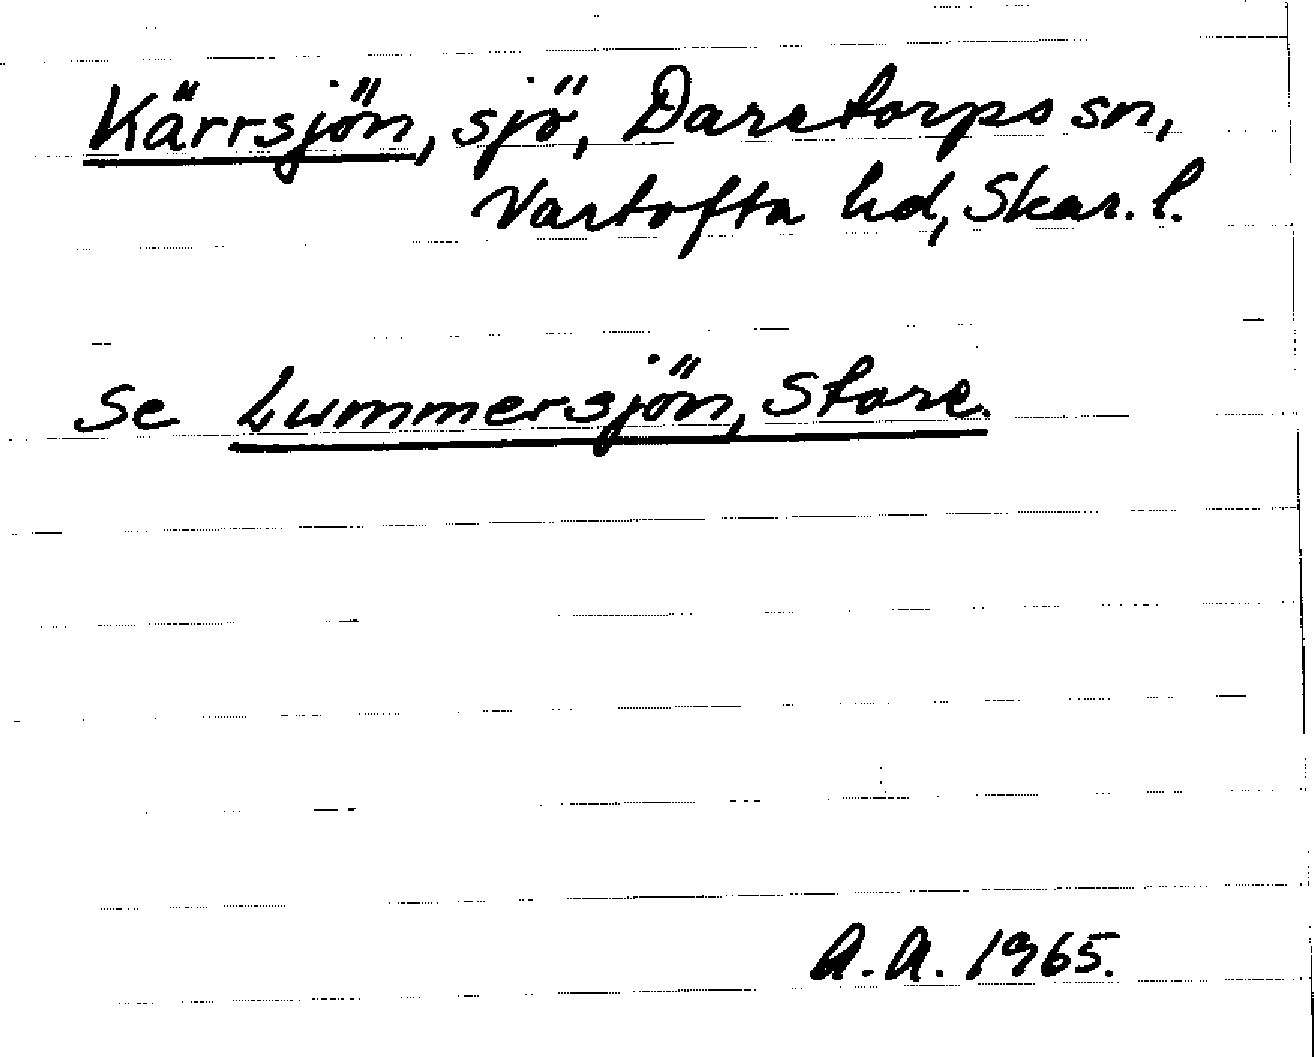 Kärrsjön, sjö, Daretorps sn,
Vartofta hd, Skar. l.
Se Lummersjön, Store.
A.A. 1965.